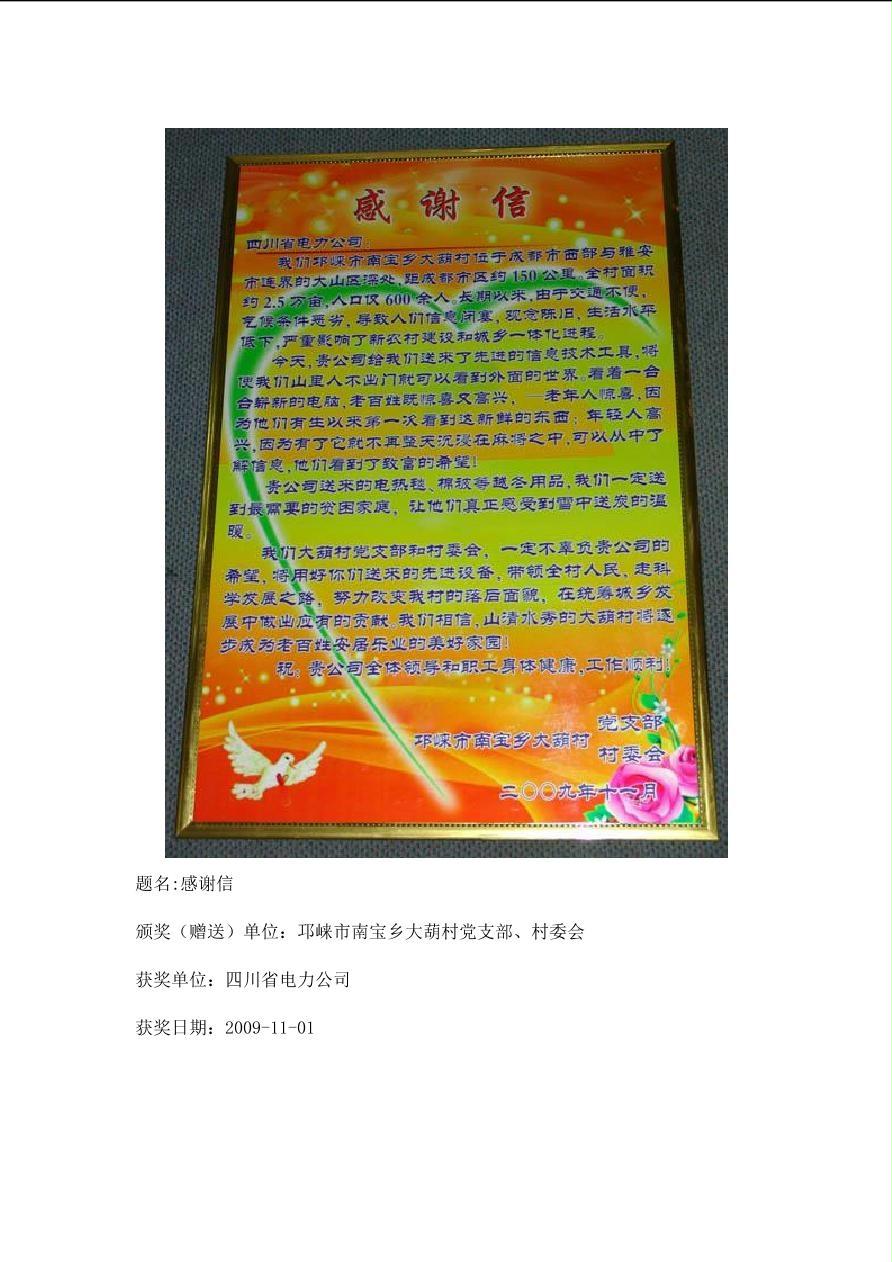 感谢信
四川省电力公司:
我们邛崃市南宝乡大葫村位于成都市西部与雅安
市连界的大山区深处,距成都市区约150公里。全村面积
约2.5万亩,人口仅600余人。长期以来,由于交通不便。
气候条件恶劣,导致人们信息闭塞,观念陈旧,生活水平
低下,严重影响了新农村建设和城乡一体化进程。
今天,贵公司给我们送来了先进的信息技术工具,将
使我们山里人不出门就可以看到外面的世界。看着一台
台崭新的电脑,老百姓既惊喜又高兴,—老年人惊喜,因
为他们有生以来第一次看到这新鲜的东西;年轻人高
兴,因为有了它就不再整天沉浸在麻将之中,可以从中了
解信息,他们看到了致富的希望!
贵公司送来的电热毯、棉被等越冬用品,我们一定送
到最需要的贫困家庭,让他们真正感受到雪中送炭的温
暖。
我们大葫村党支部和村委会,一定不辜负贵公司的
希望,将用好你们送来的先进设备,带领全村人民,走科
学发展之路,努力改变我村的落后面貌,在统筹城乡发
展中做出应有的贡献。我们相信,山清水秀的大葫村将逐
步成为老百姓安居乐业的美好家园!
祝:贵公司全体领导和职工身体健康,工作顺利!
党支部
邛崃市南宝乡大葫村
村委会
二〇〇九年十一月
题名:感谢信
颁奖（赠送）单位：邛崃市南宝乡大葫村党支部、村委会
获奖单位：四川省电力公司
获奖日期：2009-11-01